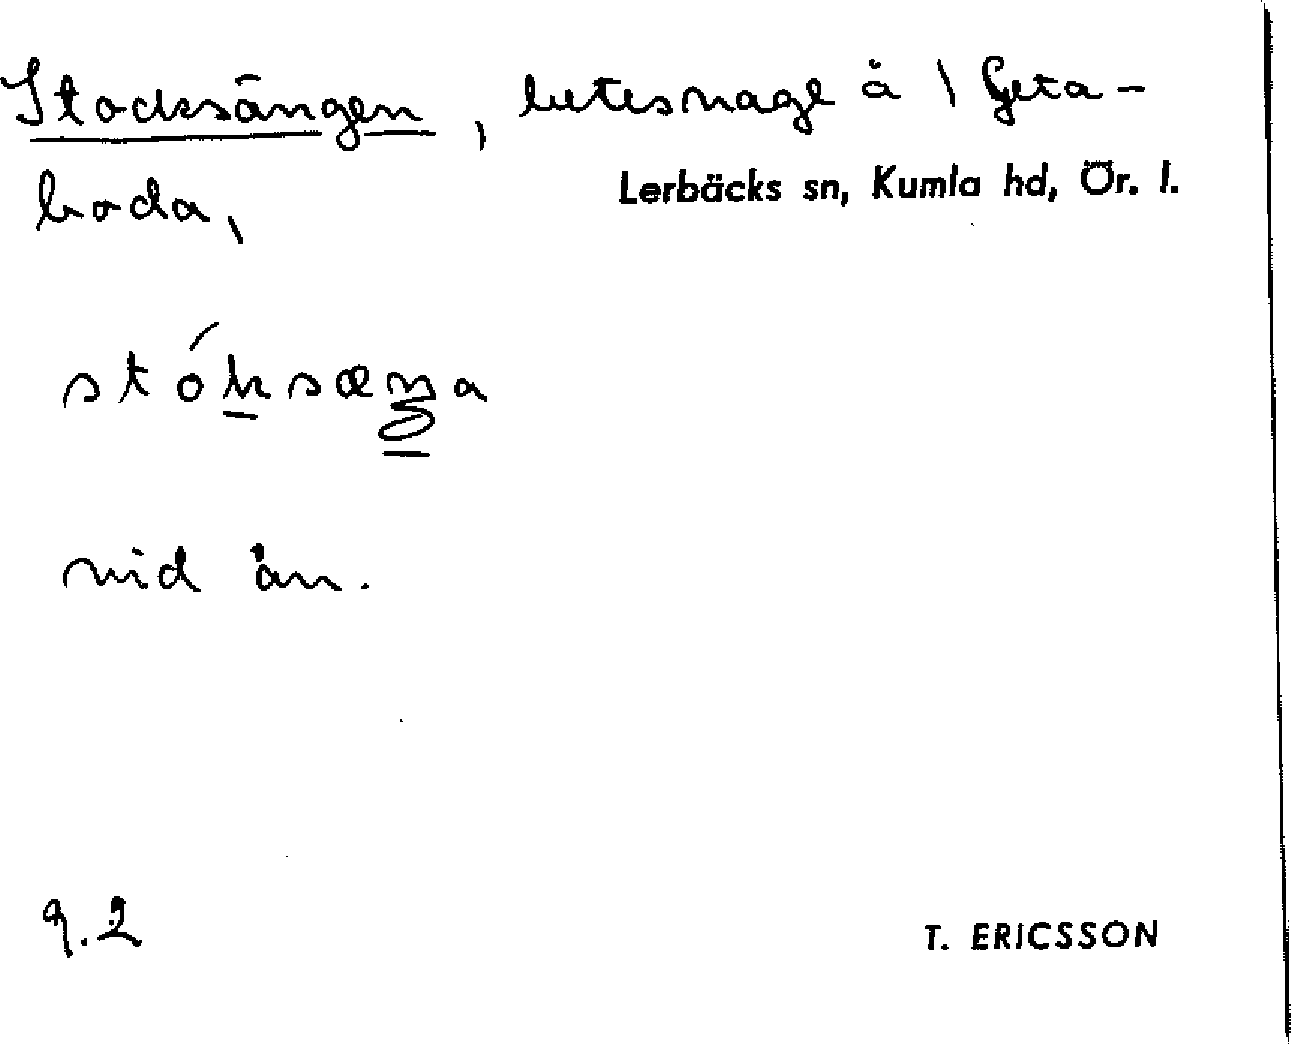 Stocksängen, beteshage å \ Geta-
boda,
Lerbäcks sn, Kumla hd, Ör. l.
vid ån.
9.2
T. ERICSSON